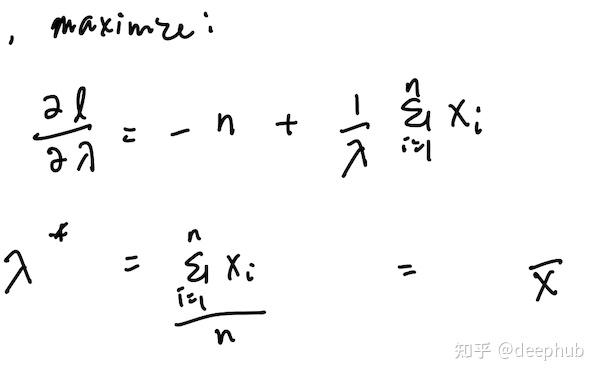 , maximize:
∂l/∂λ = - n + 1/λ ∑_{i=1}^{n} x_i
λ* = ∑_{i=1}^{n} x_i / n = x̄
知乎 @deephub